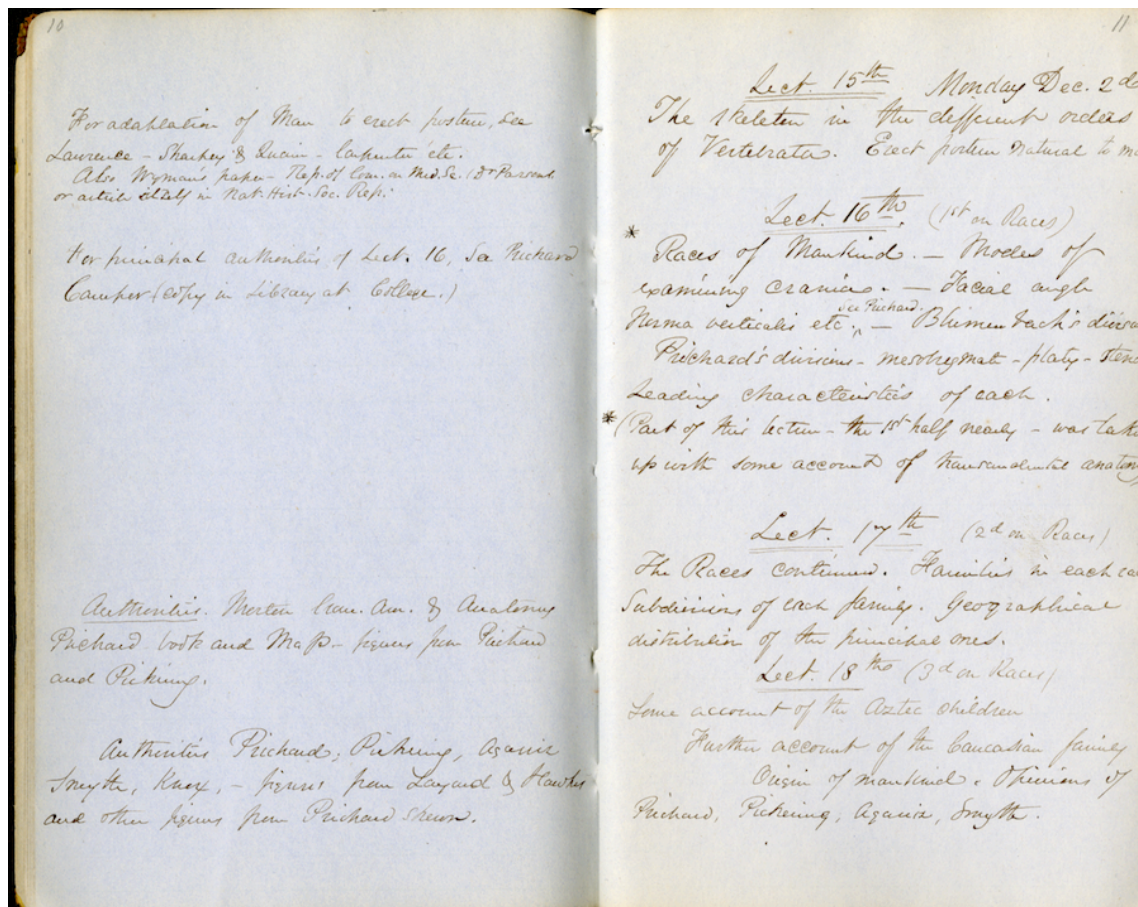 10
For adaptation of Man to erect posture, see
Lawrence - Sharpey & Quain - Carpenter etc.
Also Wyman's paper - Rep. of Com. on Med. Sc. (Dr Parsons
or article itself in Nat. Hist. Soc. Rep.
For principal authorities of Lect. 16, See Prichard
Camper (copy in Library at College.)
Authorities. Morton Cran. Am. & Anatomy
Prichard book and Map - figures from Prichard
and Pickering.
Authorities Prichard, Pickering, Agassiz
Smyth, Knox, - figures from Layard & Hawks
and other figures from Prichard shewn.
11
Lect. 15th Monday Dec. 2d
The skeleton in the different orders
of Vertebrata. Erect posture natural to
Lect. 16th. (1st on Races)
* Races of Mankind. - Modes of
examining crania. - Facial angle
See Prichard.
Norma verticalis etc. ^ - Blumenbach's
Prichard's divisions - mesobregmate - platy - steno
Leading characteristics of each.
* (Part of this lecture - the 1st half nearly - was
up with some account of transcendental anatomy
Lect. 17th (2d on Races)
The Races continued. Families in each
Subdivisions of each family. Geographical
distribution of the principal ones.
Lect. 18th (3d on Races)
Some account of the Aztec children
Further account of the Caucasian family
Origin of mankind. Opinions of
Prichard, Pickering, Agassiz, Smyth.